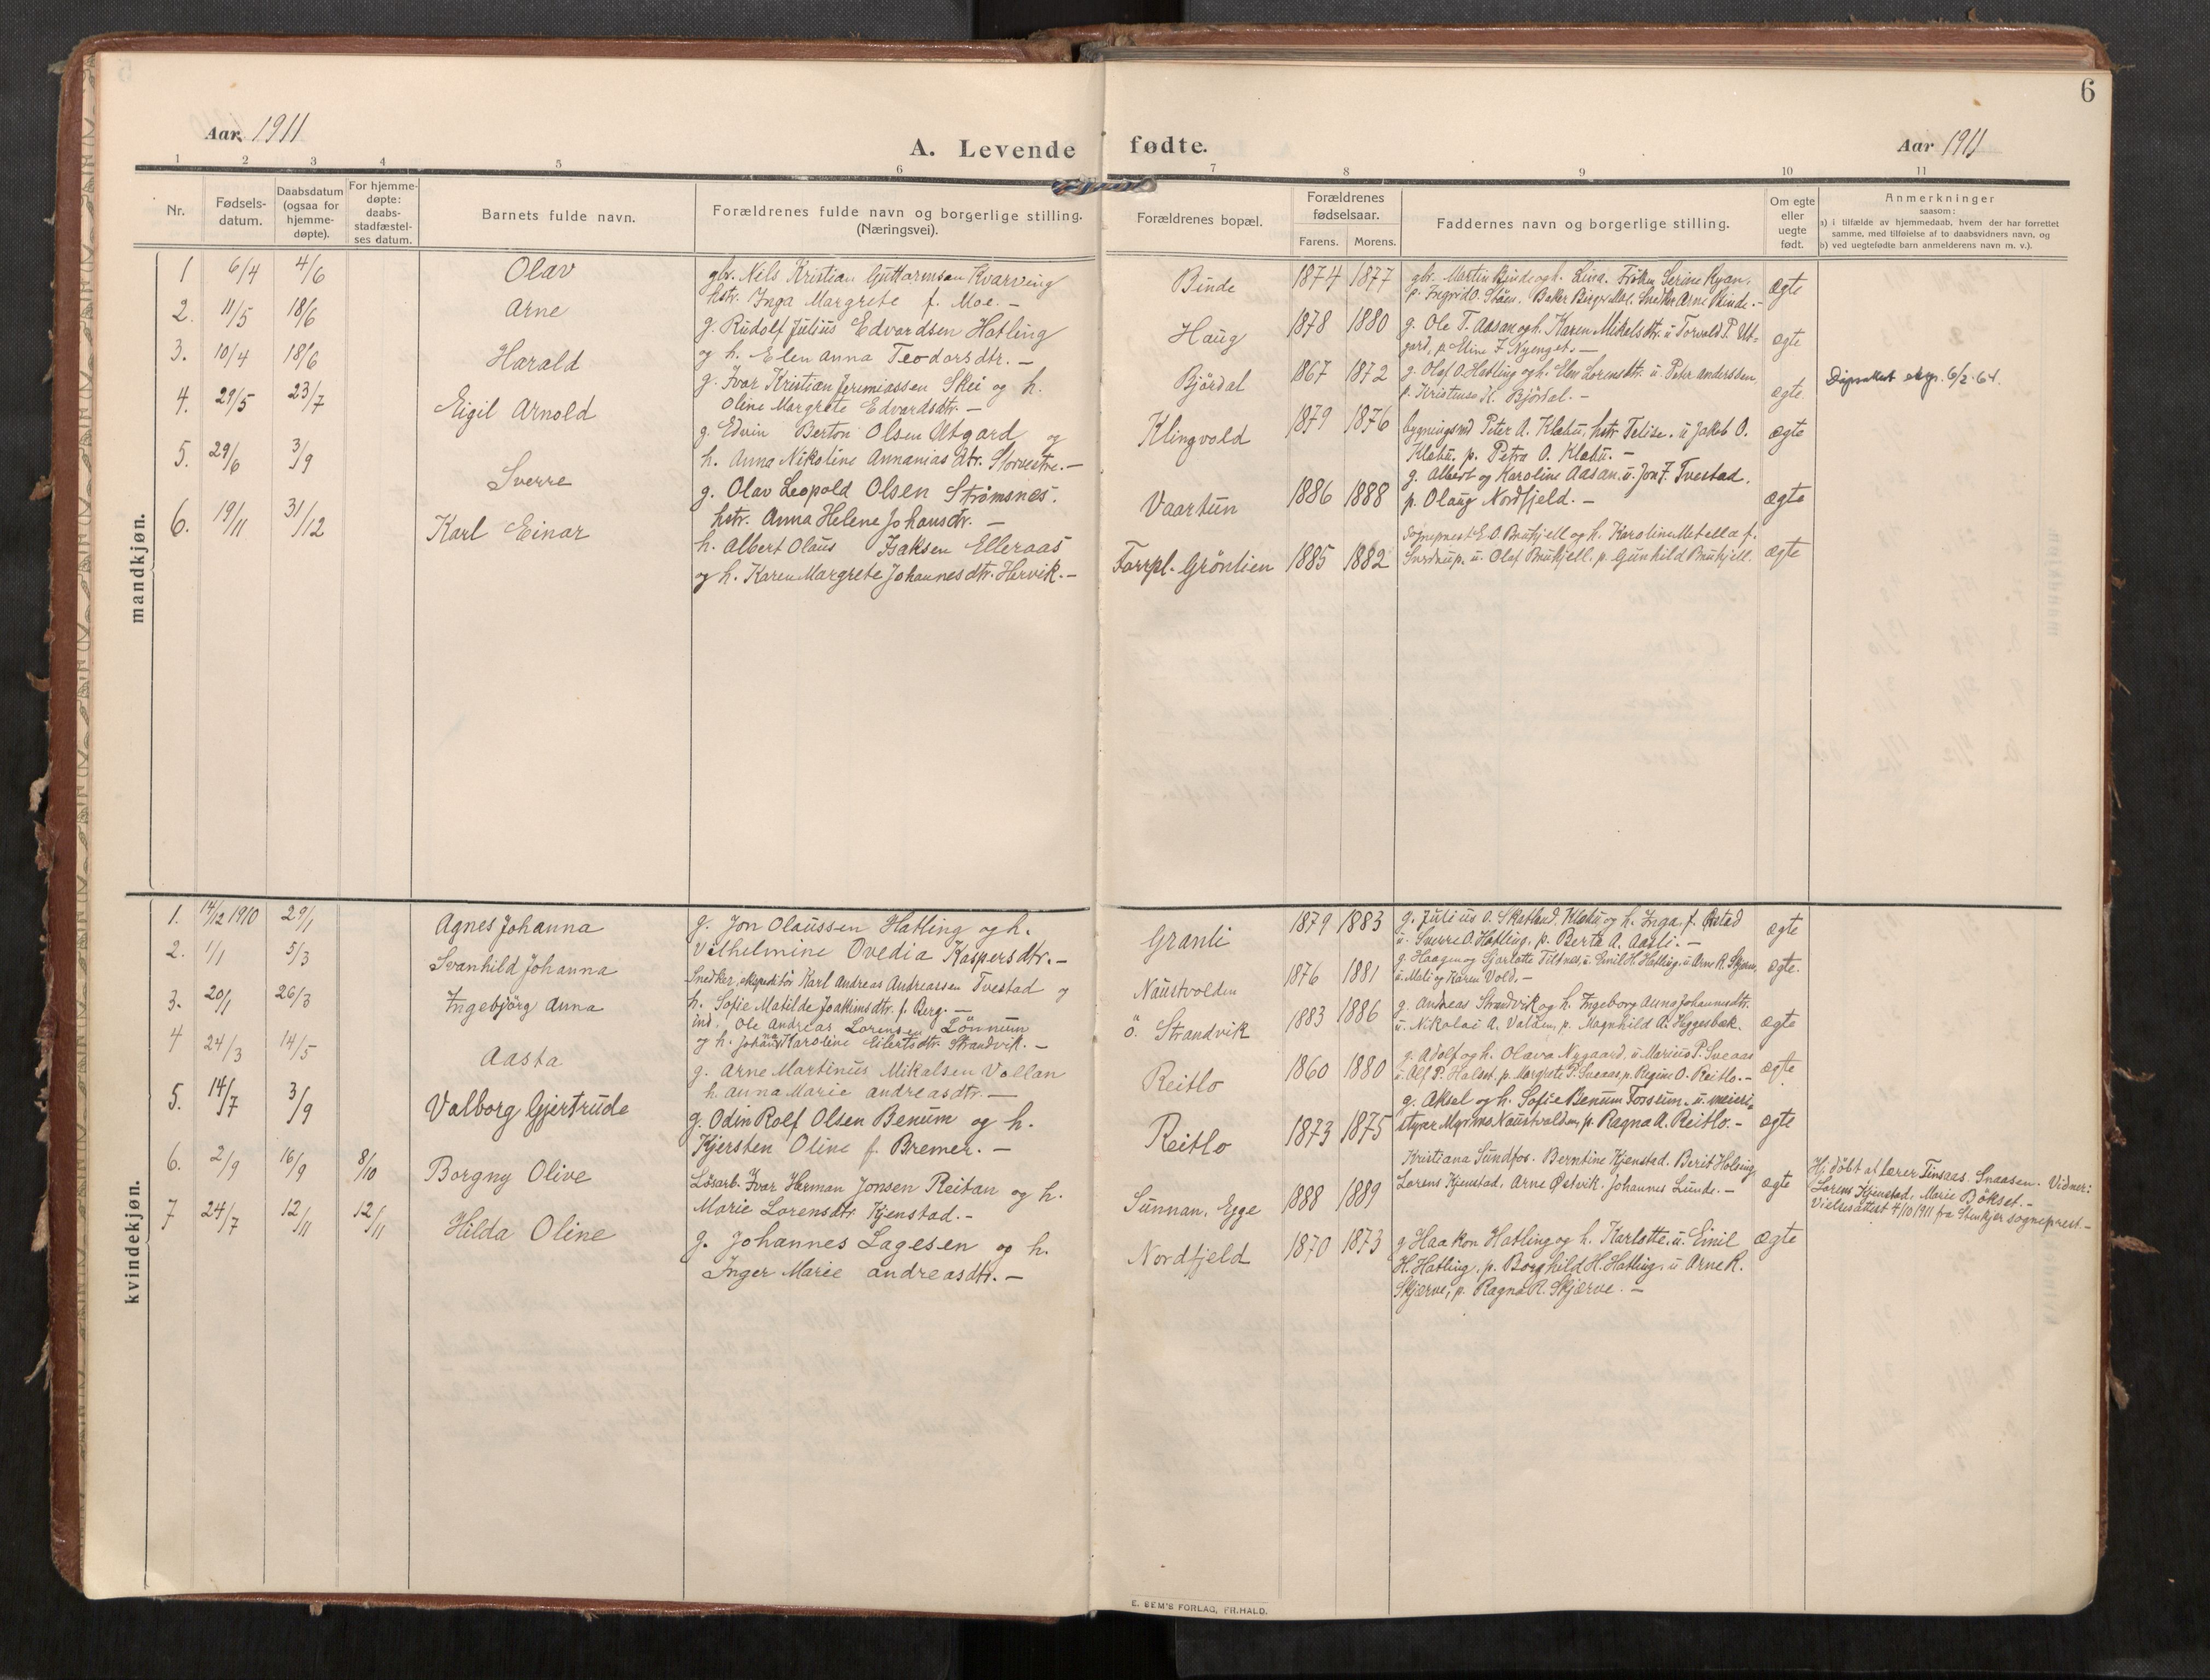 6
Aar 1911
A. Levende fødte.
Aar 1911
1 2 3 4 5 6 7 8 9 10 11
Nr.
Fødsels-
datum.
Daabsdatum
(ogsaa for
hjemme-
døpte).
For hjemme-
døpte:
daabs-
stadfæstel-
ses datum.
Barnets fulde navn.
Forældrenes fulde navn og borgerlige stilling.
(Næringsvei).
Forældrenes bopæl.
Forældrenes
fødselsaar.
Farens. Morens.
Faddernes navn og borgerlige stilling.
Om egte
eller
uegte
født.
Anmerkninger
saasom:
a) i tilfælde av hjemmedaab, hvem der har forrettet
samme, med tilføielse af to daabsvidners navn, og
b) ved uegtefødte barn anmelderens navn m. v.).
mandkjøn.
1 6/4 4/6 Olav
gbr. Nils Kristian Guttormsen Kvarving
hstr. Inga Margrete f. Moe. —
Binde 1874 1877
gbr. Martin Binde og h. Lina. Frøken Serine Ryan,
p. Ingrid O. Støen. Baker Birger Moe. Snedker Arne Binde. —
ægte
2. 11/5 18/6 Arne
g. Rudolf Julius Edvardsen Hatling
og h. Elen Anna Teodorsdtr. —
Haug 1878 1880
g. Ole T. Aasan og h. Karen Mikalsdtr. u Torvald P. Ut-
gard, p. Eline F. Nyenget. —
ægte
3. 10/4 18/6 Harald
g. Ivar Kristian Jeremiassen Skei og h.
Oline Margrete Edvardsdtr. —
Bjørdal 1867 1872
g. Olaf O. Hatling og h. Elen Lorensdtr. u. Peter Anderssen,
p. Kristense K. Bjørdal. —
ægte.
6/2-64.
4. 29/5 23/7 Eigil Arnold
g. Edvin Berton Olsen Utgard og
h. Anna Nikoline Annaniasdtr. Storvestre. —
Klingvold 1879 1876
bygningsmd Peter A. Klæbu, hstr Telise. u Jakob O.
Klæbu. p. Petra O. Klæbu. —
ægte
5. 29/6 3/9 Sverre
g. Olav Leopold Olsen Strømsnes.
hstr. Anna Helene Johansdtr. —
Vaartun 1886 1888
g. Albert og Karoline Aasan. u. Jon J. Tvestad.
p. Olaug Nordfjeld. —
ægte
6. 19/11 31/12 Karl Einar
h. Albert Olaus Isaksen Elleraas
og h. Karen Margrete Johannesdtr. Hervik. —
Forrpl. Grönlien 1885 1882
Sogneprest E. O. Bruhjell og h. Karoline Metella f.
Sverdrup. u. Olaf Bruhjell. p. Gunhild Bruhjell.
ægte
kvindekjøn.
1. 14/12 1910 29/1 Agnes Johanna
g. Jon Olaussen Hatling og h.
Vilhelmine Ovedia Kaspersdtr. —
Granli 1879 1883
g. Julius O. Skatland Klæbu og h. Inga, f. Østad
u. Sverre O. Hatling, p. Berta A. Aasli. —
ægte
2. 1/1 5/3 Svanhild Johanna
Snedker, ekspeditör Karl Andreas Andreassen Tvestad og
h. Sofie Matilde Joakimsdtr. f. Berg. —
Naustvolden 1876 1881
g. Haagen og Sjarlotte Tiltnes, u. Emil H. Hatling, u Arne R. Skjerve,
u. Mali og Karen Vold. —
ægte.
3. 20/1 26/3 Ingebjörg Anna
ind. Ole Andreas Lorensen Lönnum
og h. Johanna Karoline Eilertsdtr. Strandvik. —
ö. Strandvik 1883 1886
g. Andreas Strandvik og h. Ingeborg Anna Johannesdtr.
u. Nikolai A. Valden, p. Magnhild A. Heggesbæk.
ægte
4 24/3 14/5 Aasta
g. Arne Martinus Mikalsen Vollan
h. Anna Marie Andreasdtr. —
Reitlo 1860 1880
g. Adolf og h. Olava Nygaard, u. Marius P. Sveaas
u. Alf P. Halset. p. Margrete P. Sveaas, p. Regine O. Reitlo. —
ægte
5. 14/7 3/9 Valborg Gjertrude
g. Odin Rolf Olsen Benum og h.
Kjersten Oline f. Bremer. —
Reitlo 1873 1875
g. Aksel og h. Sofie Benum Forsum. u. meieri-
styrer Myrmo Naustvolden, p. Ragna A. Reitlo. —
ægte
6. 2/9 16/9 8/10 Borgny Olive
Lösarb. Ivar Herman Jonsen Reitan og h.
Marie Lorensdtr Kjenstad. —
Sunnan, Egge 1888 1889
Kristiana Sundfos. Berntine Kjenstad. Berit Holsing
Lorens Kjenstad, Arne Østvik. Johannes Lunde. —
ægte
Hj. döbt af lærer Tinsaas Snaasen. Vidner:
Lorens Kjenstad, Marie Bökset. —
Vielsesattest 4/10 1911 fra Stenkjer sogneprest. —
7 24/7 12/11 12/11 Hilda Oline
g. Johannes Lagesen og h.
Inger Marie Andreasdtr. —
Nordfjeld 1870 1873
g Haakon Hatling og h. Karlotte. u. Emil
H. Hatling, p. Borghild H. Hatling, u Arne R.
Skjærve, p. Ragna R. Skjærve. —
ægte
E. SEM'S FORLAG, FR.HALD.